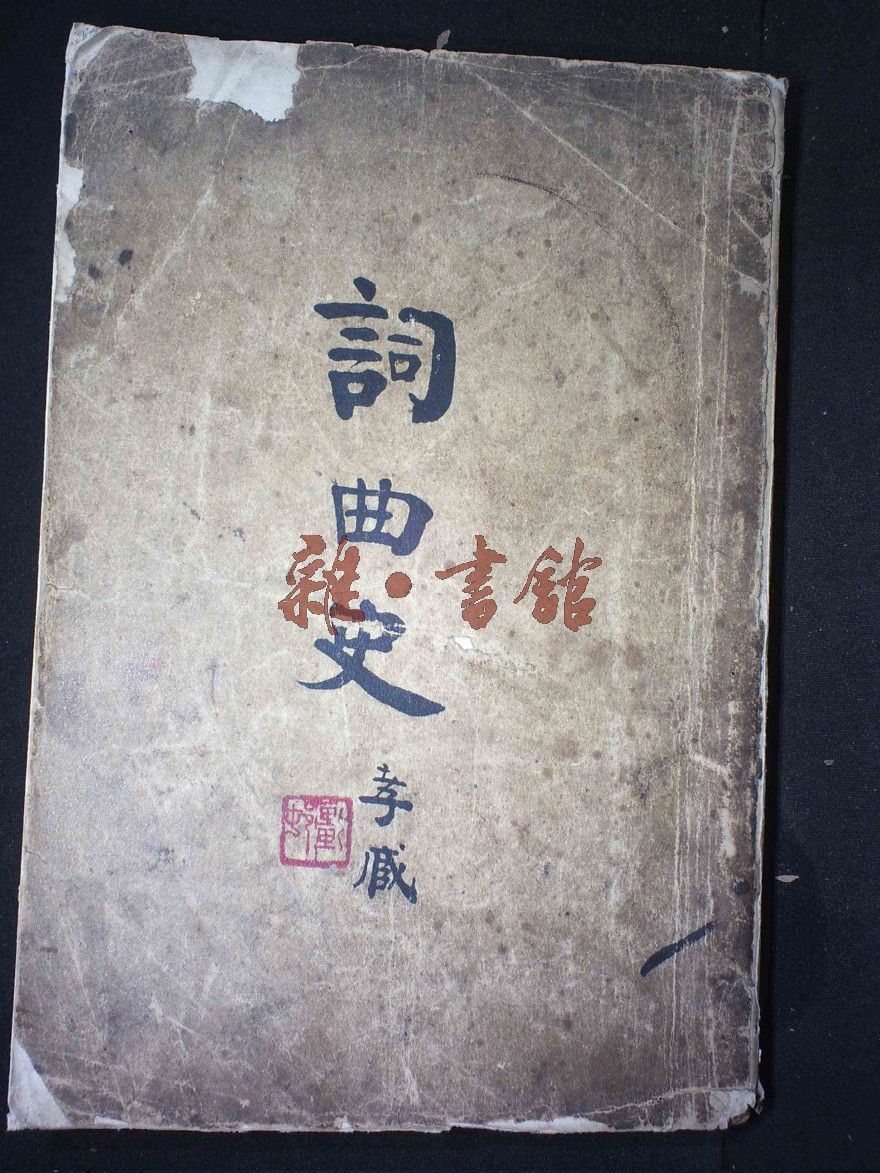 詞曲史
孝臧
雜·書館